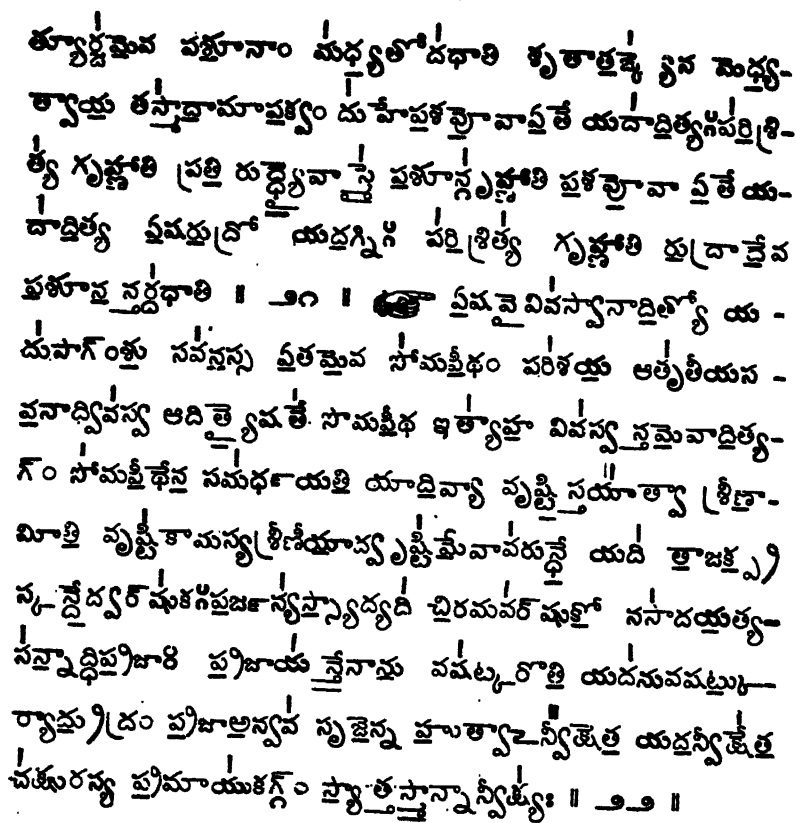 త్యూర్జ॑మే॒వ ప॑శూ॒నాం మ॑ధ్య॒తోద॑ధాతి శృతాత॒ఙ్క్యే॑న మేధ్య-
త్వాయ॒ తస్మా॑దా॒మాప॒క్వం దు॑హేప॒శవో॒వాఏ॒తే యదా॑ది॒త్యఃప॑రి॒శ్రి-
త్య॑ గృహ్ణాతి ప్రతి॒ రుధ్యై॒వాస్మై॑ ప॒శూన్గృ॑హ్ణాతి ప॒శవో॒వా ఏ॒తేయ-
దా॑ది॒త్య ఏ॒షరు॒ద్రో యద॒గ్నిః ప॑రి॒శ్రిత్య॑ గృహ్ణాతి రు॒ద్రాదే॒వ
ప॒శూన॒న్తర్ద॑ధాతి ॥ ౨౧ ॥ ఏ॒ష వై॒ వివ॑స్వానాది॒త్యో య -
దు॑పాగ్ంశు॒ సవ॑న॒స్స ఏ॒తమే॒వ సో॑మపీ॒థం పరి॑శయ॒ ఆతృ॑తీయస -
వ॒నాద్వివ॑స్వ ఆదిత్యై॒షతే॑ సోమపీ॒థ ఇత్యా॑హ॒ వివ॑స్వన్తమే॒వాది॒త్య-
గ్ం సో॑మపీ॒థేన॒ సమ॑ర్ధయతి॒ యాది॒వ్యా వృ॒ష్టి॒స్తయా᳚త్వా శ్రీణా॒-
మీతి॒ వృష్టి॑కామస్యశ్రీణీయా॒ద్వృష్టి॑మే॒వావ॑రున్ధే॒ యది॑ తా॒జక్ప్ర॒
స్కన్దే॒ద్వర్షు॑కఃప॒ర్జన్య॑స్స్యా॒ద్యది॑ చి॒రమవ॑ర్షుకో॒ నసా॑దయ॒త్య-
స॑న్నా॒ద్ధిప్ర॒జాః ప్ర॒జాయ॑న్తే॒నాను॒ వష॑ట్కరోతి॒ యద॑నువషట్కు॒-
ర్యాద్రు॒ద్రం ప్ర॒జాఅ॒న్వవ॑ సృజే॒న్న హు॒త్వాఽన్వీ᳚క్షేత॒ యద॒న్వీక్షే॑త॒
చ॑క్షురస్య ప్ర॒మాయు॑కగ్గ్ం స్యా॒త్తస్మా॒న్నాన్వీక్ష్యః॑ ॥ ౨౨ ॥